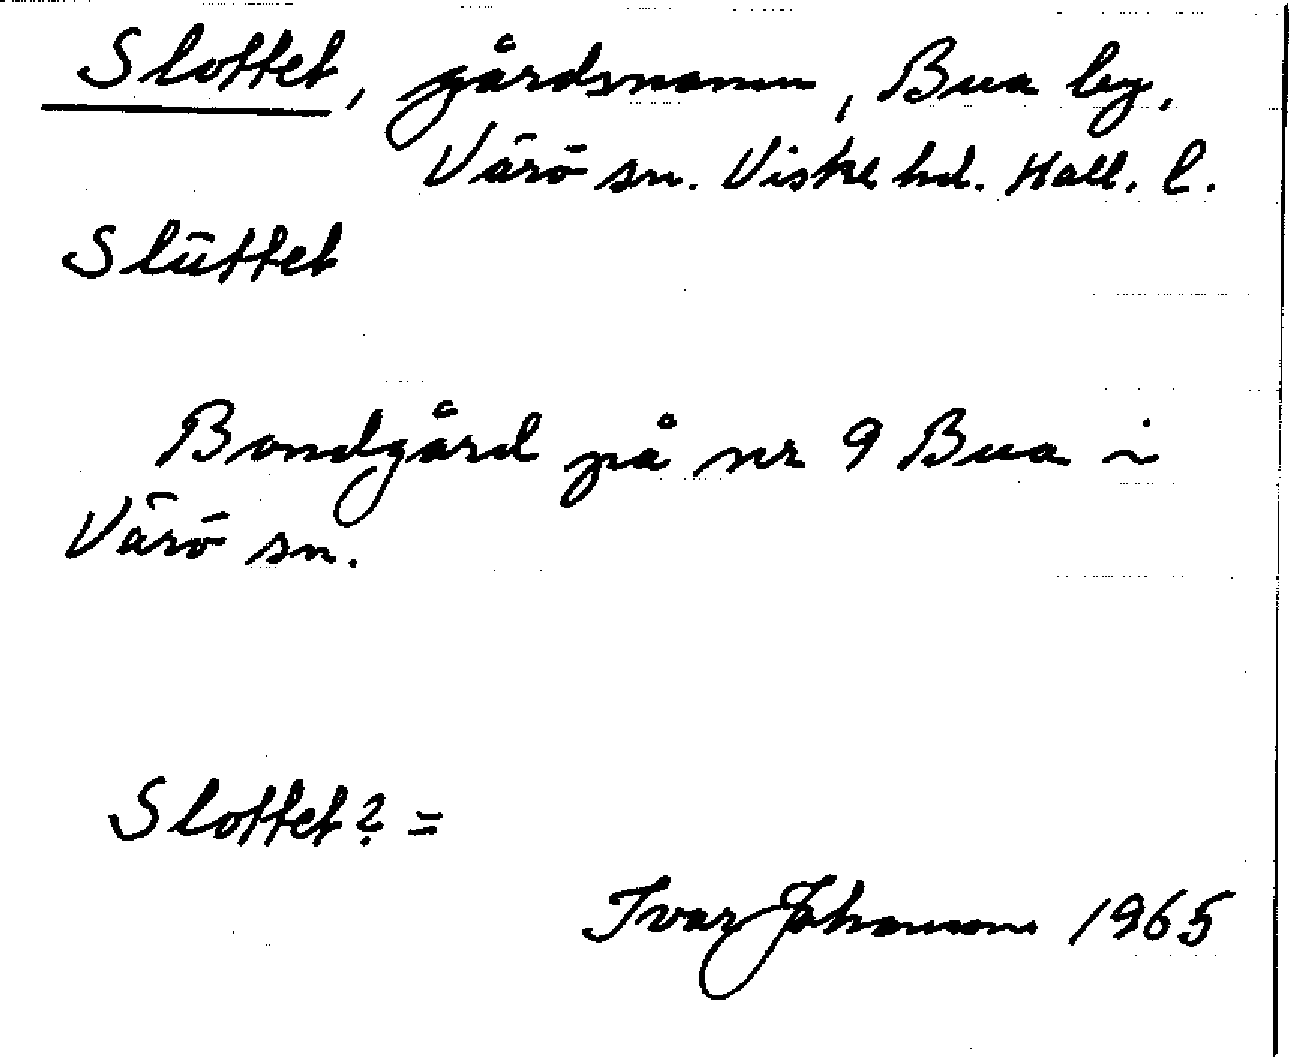 Slottet, gårdsnamn, Bua by.
Värö sn. Viske hd. Hall. l.
Slüttet
Bondgård på nr 9 Bua i
Värö sn.
Slottet? =
Ivar Johansson 1965